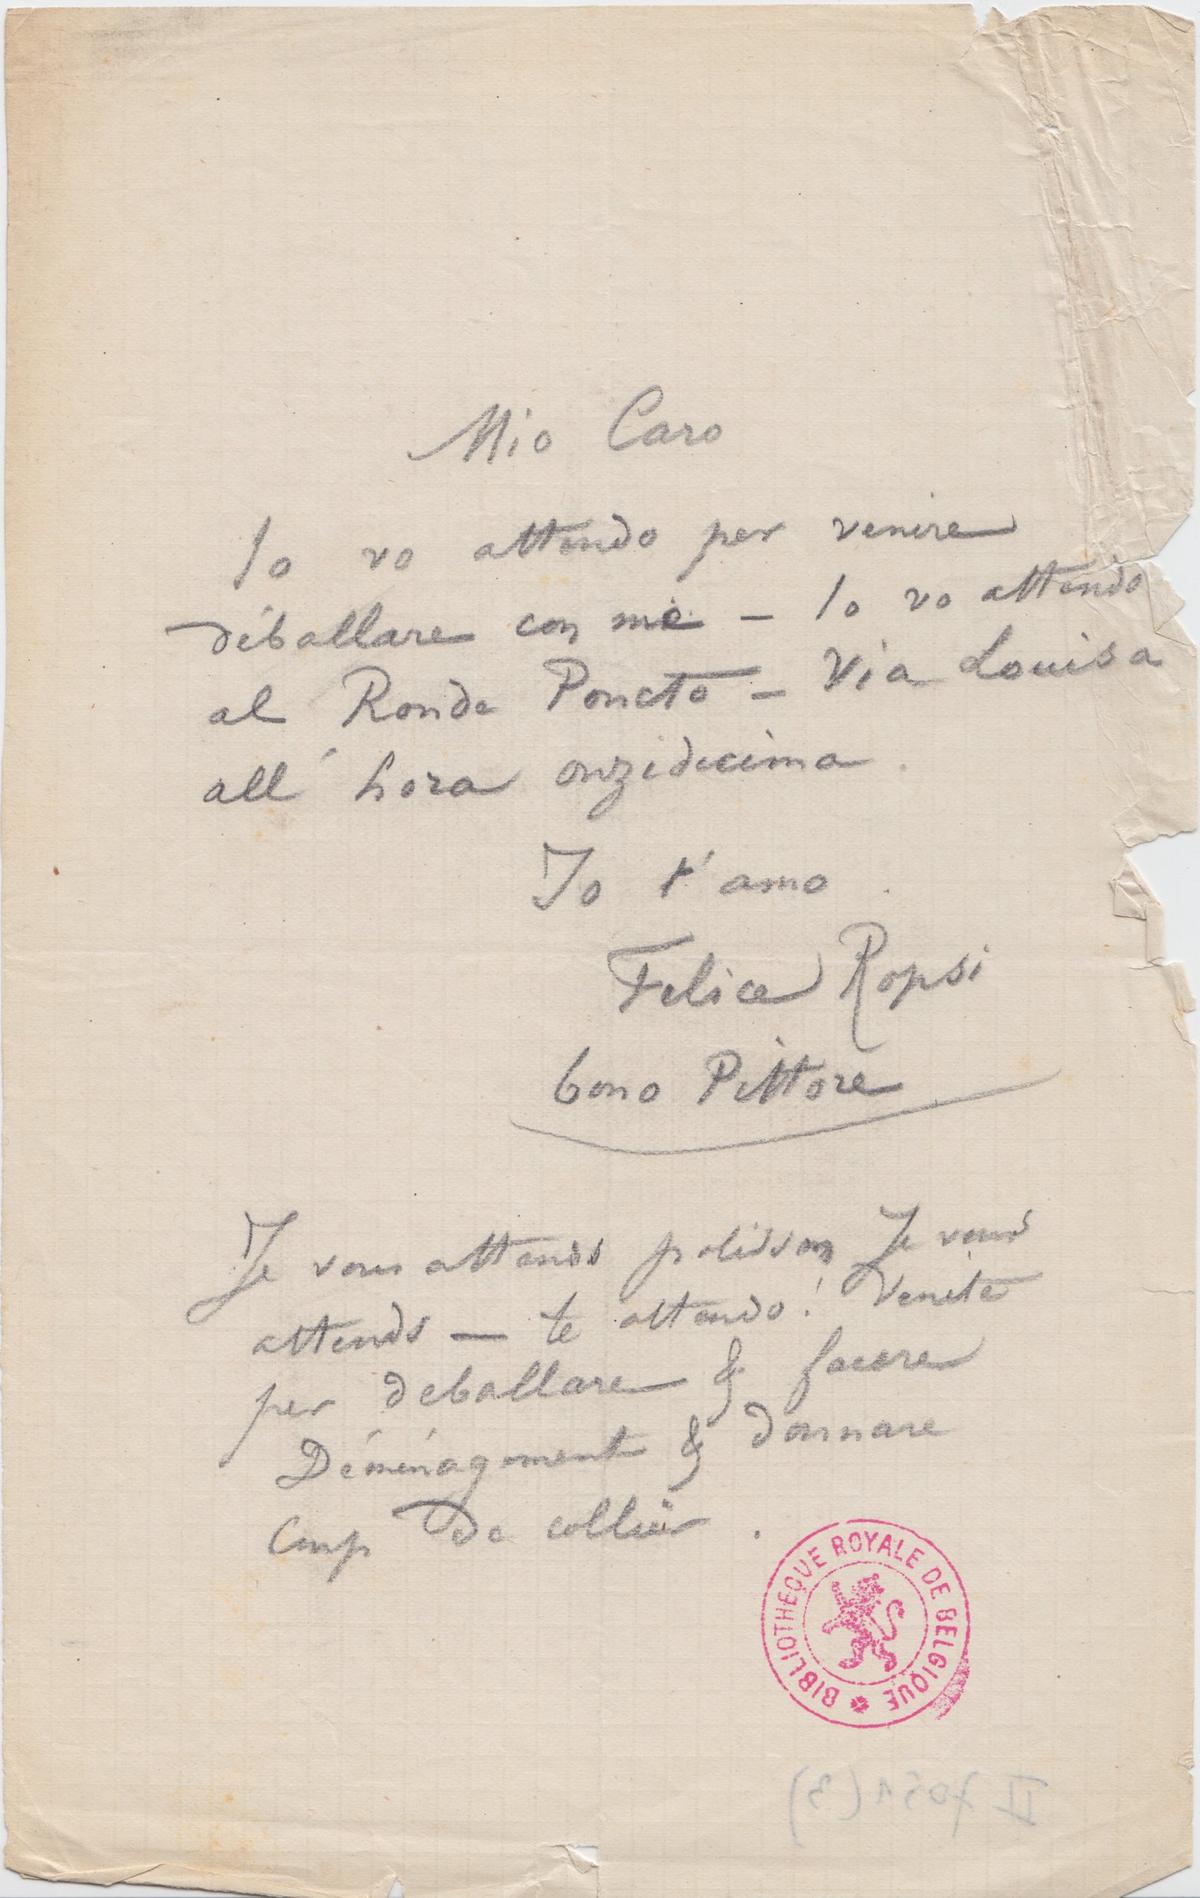 Mio Caro
Io vo attendo per venire
déballare con me – Io vo attendo
al Ronde Poncto – Via Louisa
all' hora onzidecima.
Io t'amo.
Felice Ropsi
bono Pittore
Je vous attends polisson Je vous
attends — te attendo! Venite
per deballare & facere
Déménagement & donnare
Coup de collier.
BIBLIOTHEQUE ROYALE DE BELGIQUE
II 7051 (3)